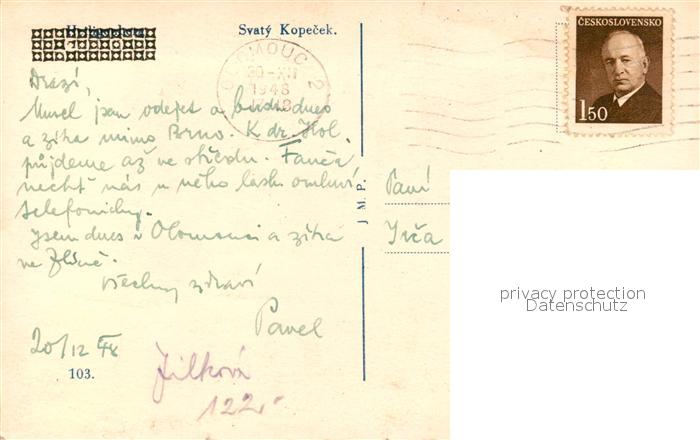 Svatý Kopeček.
ČESKOSLOVENSKO
1.50
OLOMOUC 2
20.-XII
1948
Drazí,
Musel jsem odejet a budu dnes
a zítra mimo Brno. K dr. Hol.
půjdeme až ve středu. Fanča
nechť nás u něho lask. omluví
telefonicky.
Jsem dnes v Olomouci a zítra
ve Zlíně.
Všechny zdraví
Pavel
20/12 48
103.
Jílková
122
J M P.
Paní
privacy protection
Datenschutz